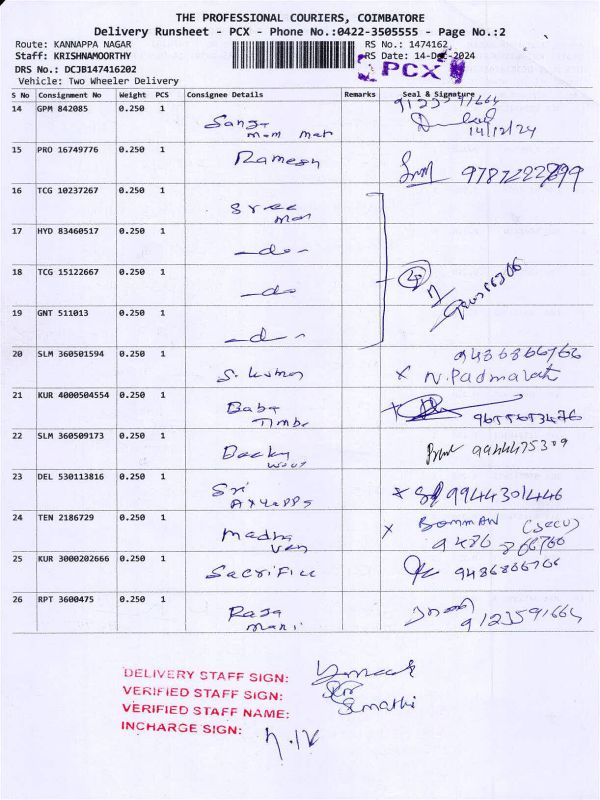 THE PROFESSIONAL COURIERS, COIMBATORE
Delivery Runsheet - PCX - Phone No.:0422-3505555 - Page No.:2
Route: KANNAPPA NAGAR RS No.: 1474162
Staff: KRISHNAMOORTHY RS Date: 14-Dec-2024
DRS No.: DCJB147416202 PCX
Vehicle: Two Wheeler Delivery
S No Consignment No Weight PCS Consignee Details Remarks Seal & Signature
14 GPM 842085 0.250 1 Sanga
14/12/24
15 PRO 16749776 0.250 1 Ramesh
16 TCG 10237267 0.250 1 Sree
17 HYD 83460517 0.250 1 -do-
18 TCG 15122667 0.250 1 -do
19 GNT 511013 0.250 1
20 SLM 360501594 0.250 1 S. Kumar 9486866766
x N. Padmavathi
21 KUR 4000504554 0.250 1 Baba
Timber
22 SLM 360509173 0.250 1 9944475309
23 DEL 530113816 0.250 1 Sri x 9944301446
Ayyappa
24 TEN 2186729 0.250 1 Madha x BOMMAN (SECU)
van 9486866766
25 KUR 3000202666 0.250 1 Sacrifice 9486866766
26 RPT 3600475 0.250 1 Raja
mani 9123591664
DELIVERY STAFF SIGN:
VERIFIED STAFF SIGN:
VERIFIED STAFF NAME: Sumathi
INCHARGE SIGN: